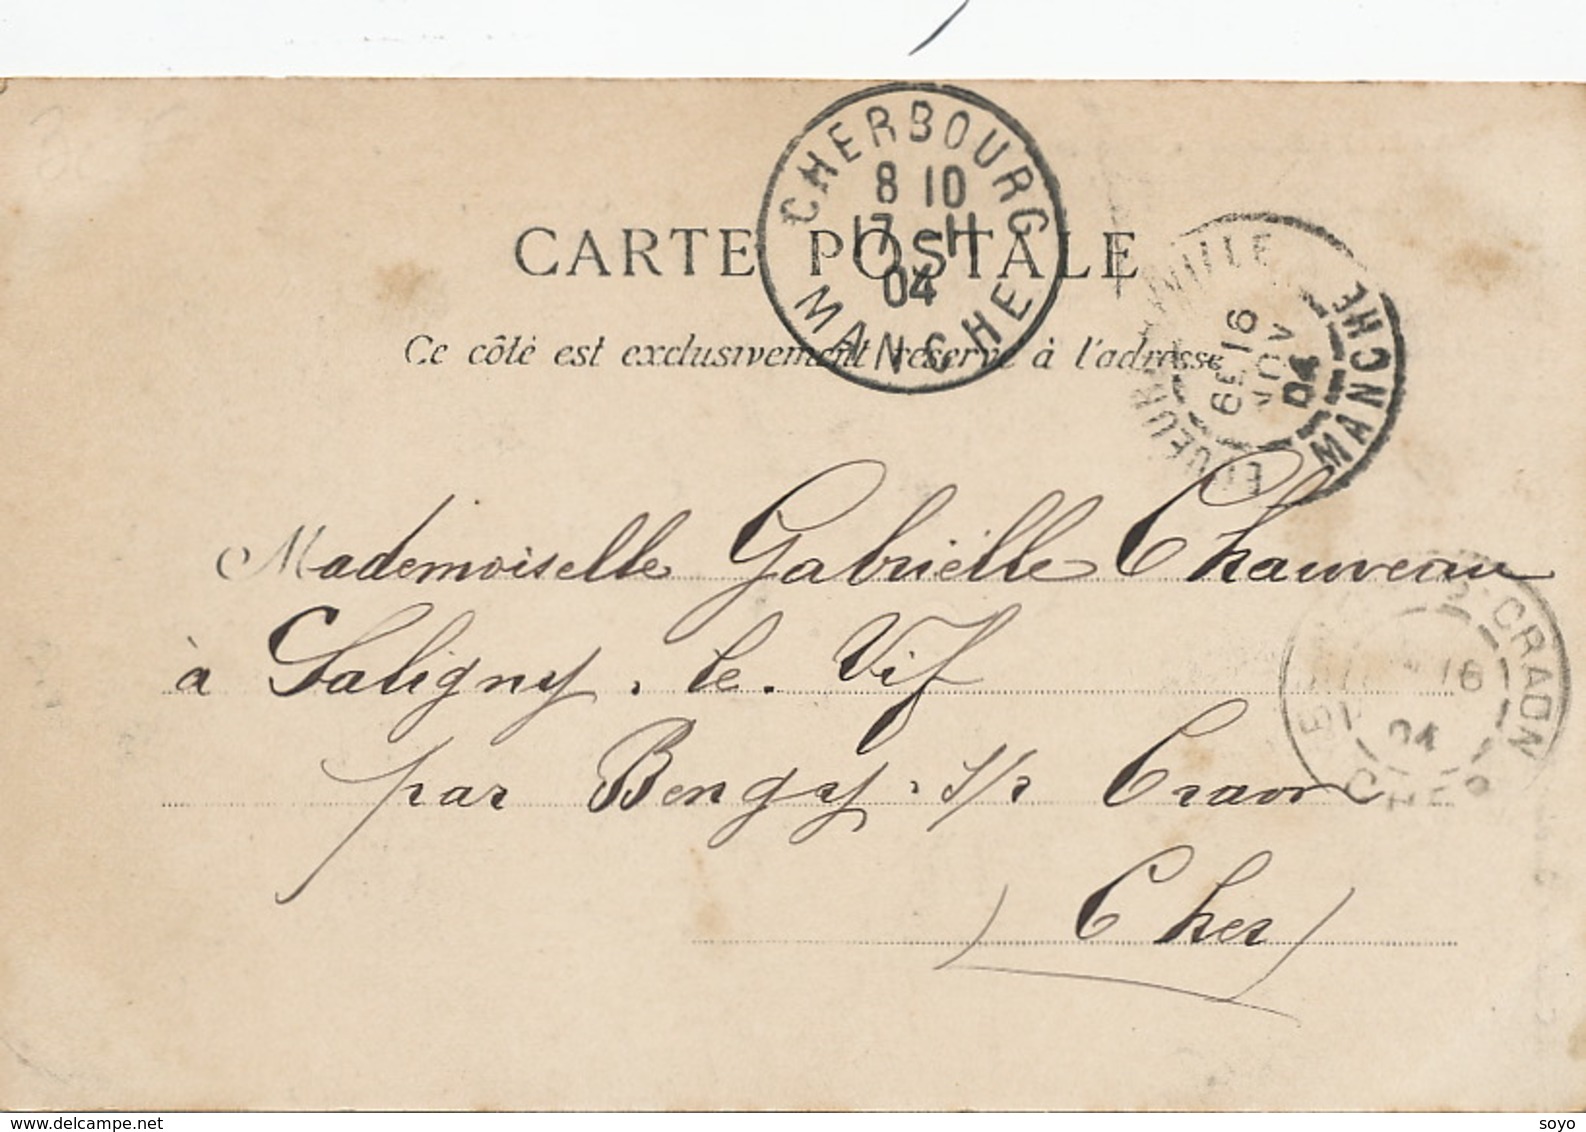 CHERBOURG
8 10
17 -11
04
MANCHE
CARTE POSTALE
Ce côté est exclusivement réservé à l'adresse
MANCHE
16
NOV
04
Mademoiselle Gabriëlle Chauveau
à Saligny. le. Vif
par Bengy. s/s Craon
(Cher)
CRAON
16
04
www.delcampe.net
soyo